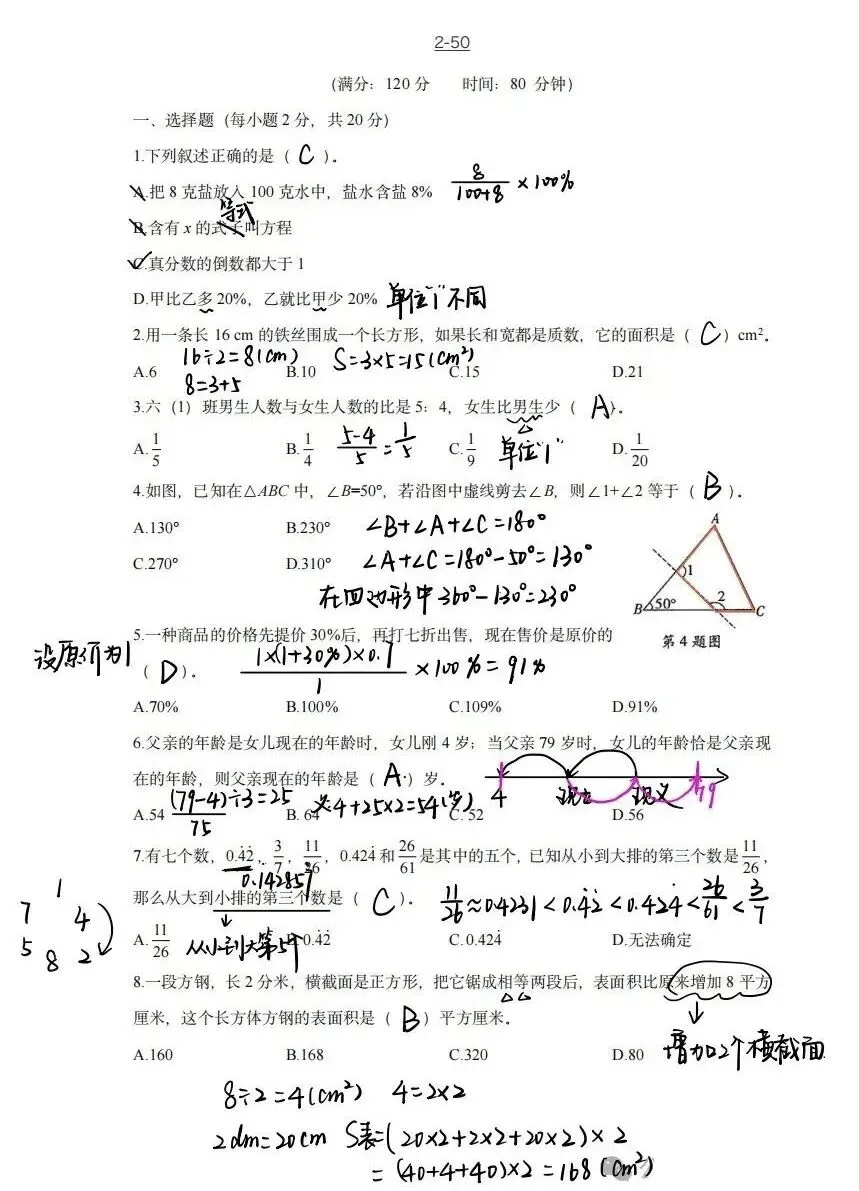 2-50
(满分：120分 时间：80 分钟)
一、选择题（每小题2分，共20分）
1.下列叙述正确的是（ C ）。
A.把8克盐放入100克水中，盐水含盐8% 8/(100+8) ×100%
等式
B.含有x的式子叫方程
C.真分数的倒数都大于1
D.甲比乙多20%，乙就比甲少20% 单位"1"不同
2.用一条长16 cm的铁丝围成一个长方形，如果长和宽都是质数，它的面积是（ C ）cm²。
16÷2=8(cm) S=3×5=15(cm²)
A.6 B.10 C.15 D.21
8=3+5
3.六（1）班男生人数与女生人数的比是5：4，女生比男生少（ A ）。
A.1/5 B.1/4 (5-4)/5=1/5 C.1/9 单位"1" D.1/20
4.如图，已知在△ABC中，∠B=50°，若沿图中虚线剪去∠B，则∠1+∠2等于（ B ）。
A.130° B.230° ∠B+∠A+∠C=180°
C.270° D.310° ∠A+∠C=180°-50°=130°
在四边形中360°-130°=230°
A
1
2
B 50° C
第4题图
5.一种商品的价格先提价30%后，再打七折出售，现在售价是原价的
设原价为1
（ D ）。 1×(1+30%)×0.7/1 ×100%=91%
A.70% B.100% C.109% D.91%
6.父亲的年龄是女儿现在的年龄时，女儿刚4岁；当父亲79岁时，女儿的年龄恰是父亲现
在的年龄，则父亲现在的年龄是（ A ）岁。
4 现女 现父 79
(79-4)÷3=25
75
A.54 B.64 父:4+25×2=54(岁) C.52 D.56
7.有七个数，0.4̇2̇，3/7，11/26，0.424̇和26/61是其中的五个，已知从小到大排的第三个数是11/26，
0.142857
那么从大到小排的第三个数是（ C ）。 11/26≈0.4231<0.4̇2̇<0.424̇<26/61<3/7
1
7 4
5 8 2
A.11/26 从小到大第5个 B.0.4̇2̇ C.0.424̇ D.无法确定
8.一段方钢，长2分米，横截面是正方形，把它锯成相等两段后，表面积比原来增加8平方
厘米，这个长方体方钢的表面积是（ B ）平方厘米。
A.160 B.168 C.320 D.80 增加2个横截面
8÷2=4(cm²) 4=2×2
2dm=20cm S表=(20×2+2×2+20×2)×2
=(40+4+40)×2=168(cm²)